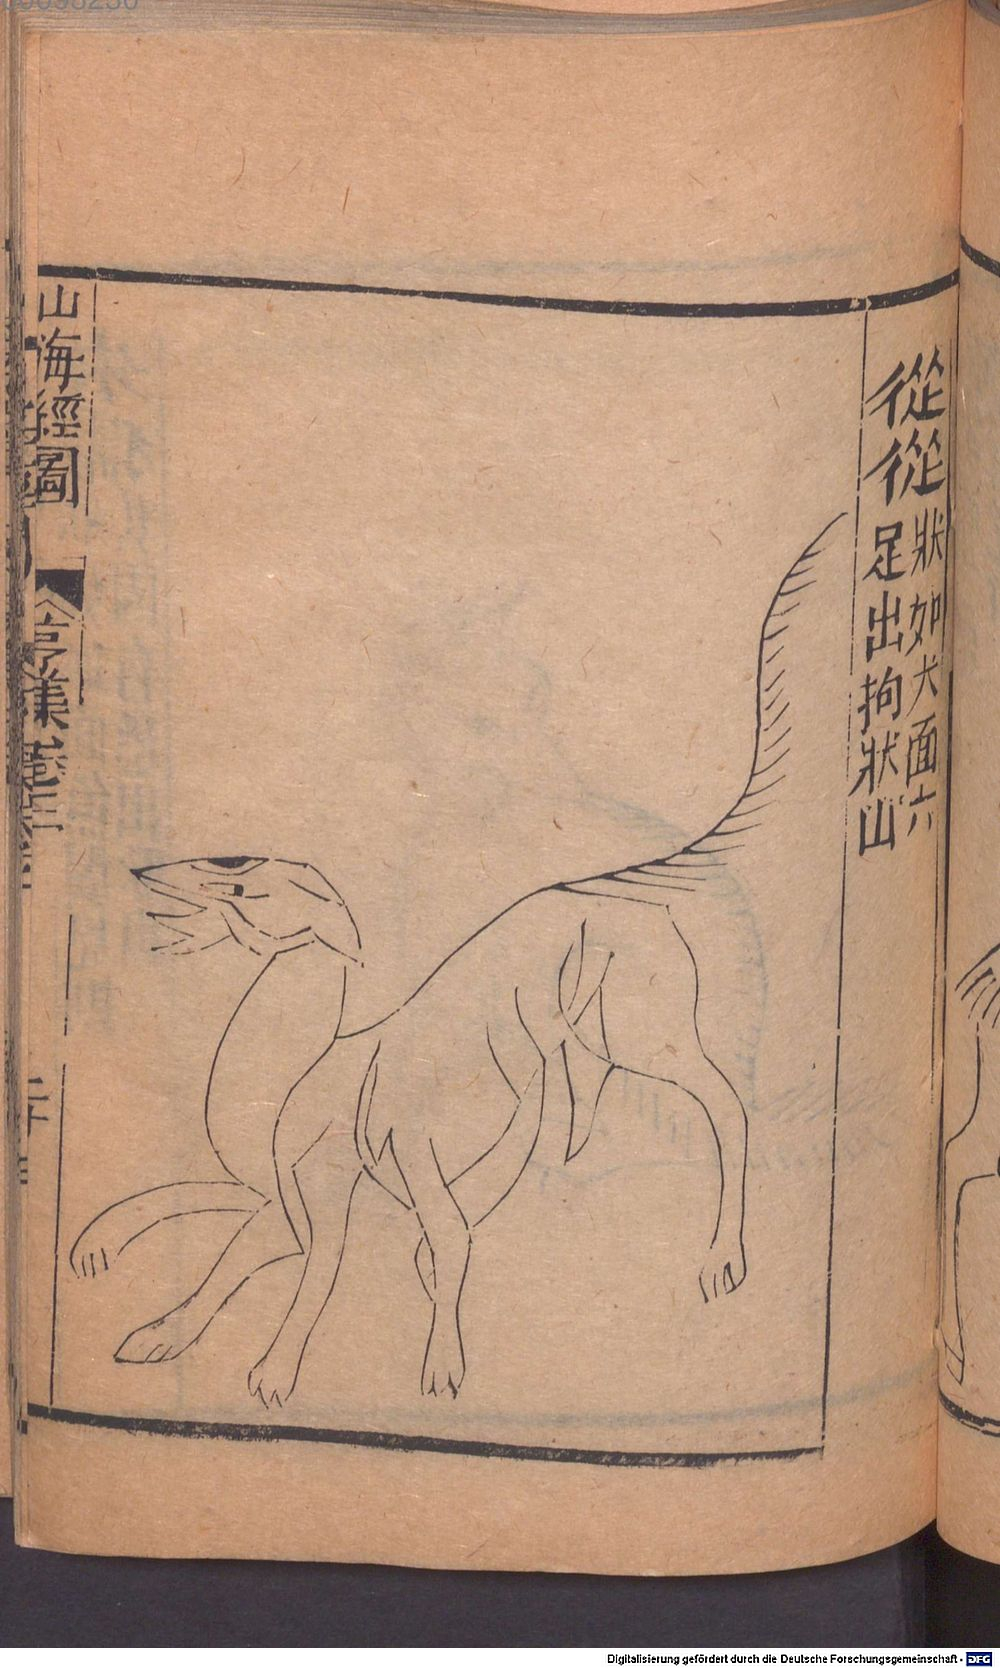 從從 狀如犬面六
足出拘狀山
山海經圖
Digitalisierung gefördert durch die Deutsche Forschungsgemeinschaft - DFG